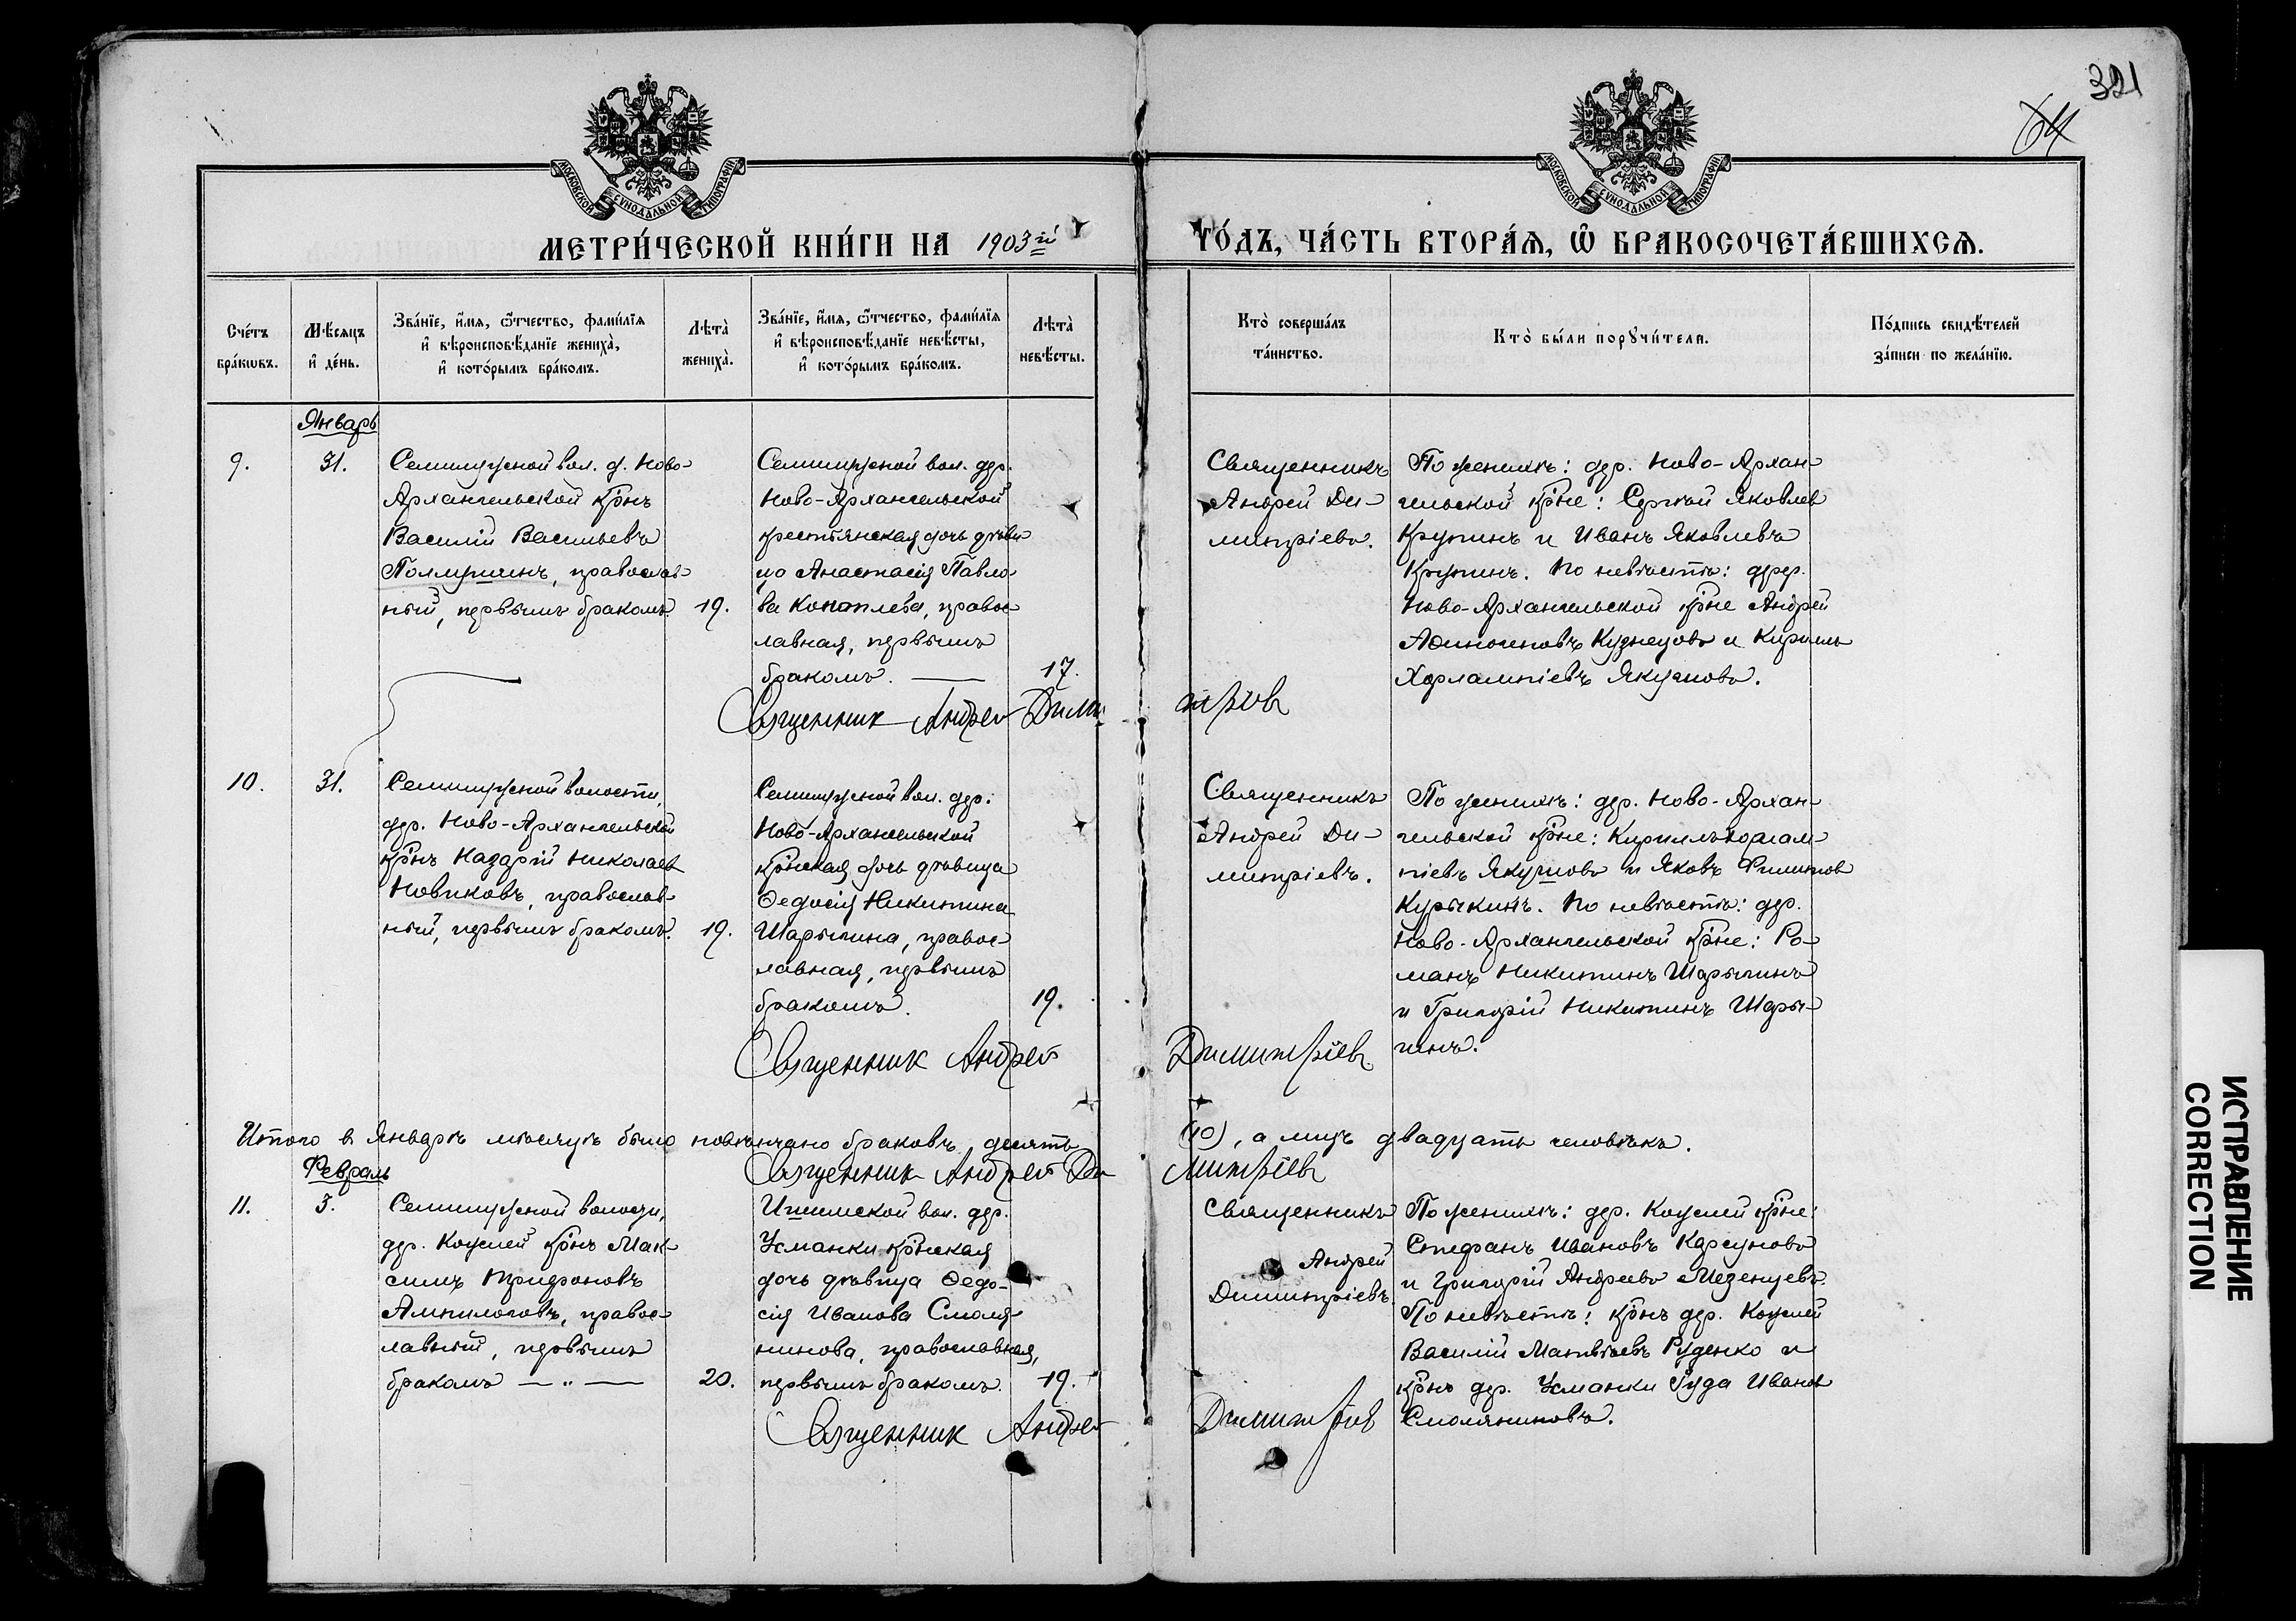 321
64
МОСКОВСКОЙ СѴНОДАЛЬНОЙ ТИПОГРАФІИ
МОСКОВСКОЙ СѴНОДАЛЬНОЙ ТИПОГРАФІИ
МЕТРИ́ЧЕСКОЙ КНИ́ГИ НА 1903й
ГО́ДЪ, ЧА́СТЬ ВТОРА́Я, Ѿ БРАКОСОЧЕТА́ВШИХСѦ.
Сче́тъ
бра́кѡвъ.
Мѣ́сяцъ
и҆ де́нь.
Зва́нїе, и҆́мя, ѻ҆́тчество, фами́лїя
и҆ вѣроисповѣ́данїе жениха̀,
и҆ кото́рымъ бра́комъ.
Лѣ́та
жениха̀.
Зва́нїе, и҆́мя, ѻ҆́тчество, фами́лїя
и҆ вѣроисповѣ́данїе невѣ́сты,
и҆ кото́рымъ бра́комъ.
Лѣ́та
невѣ́сты.
Кто̀ соверша́лъ
та́инство.
Кто̀ бы́ли порꙋчи́тели.
По́дпись свидѣ́телей
за́писи по жела́нїю.
Январь
9.
31.
Семилужной вол. д. Ново-
Архангельской кр̃нъ
Василій Васильевъ
православ-
ный, первымъ бракомъ.
19.
Семилужной вол. дер.
Ново-Архангельской
крестьянская дочь дѣви
ца Анастасія Павло-
ва Коноплева, правос-
лавная, первымъ
бракомъ.
17.
Священникъ
Андрей Ди-
митріевъ.
По женихѣ: дер. Ново-Архан-
гельской кр̃не: Сергѣй Яковлев
Крупинъ и Иванъ Яковлевъ
Крупинъ. По невѣстѣ: дер.
Ново-Архангельской кр̃не Андрей
Аѳиногеновъ Кузнецовъ и Кирилъ
Харлампіевъ Якушовъ.
Священник Андрей Дими-
тріев
10.
31.
Семилужной волости,
дер. Ново-Архангельской
кр̃нъ Назарій Николаев
Новиковъ, православ-
ный, первымъ бракомъ.
19.
Семилужной вол. дер.
Ново-Архангельской
кр̃нская дочь дѣвица
Ѳедосія Никитина
Шарыгина, правос-
лавная, первымъ
бракомъ.
19.
Священникъ
Андрей Ди-
митріевъ.
По женихѣ: дер. Ново-Архан-
гельской кр̃не: Кириллъ Харлам-
піевъ Якушовъ и Яковъ Филипов
Курыкинъ. По невѣстѣ: дер.
Ново-Архангельской кр̃не: Ро-
манъ Никитинъ Шарыгинъ
и Григорій Никитинъ Шары-
гинъ.
Священник Андрей
Димитріев
Итого в Январѣ мѣсяцѣ было повѣнчано браковъ десять
(10), а лицъ двадцать человѣкъ.
Священник Андрей Ди
митріев
Февраль
11.
3.
Семилужной волости,
дер. Кожлей кр̃нъ Мак-
симъ Трифоновъ
Ампилоговъ, правос-
лавный, первымъ
бракомъ
20.
Ишимской вол. дер.
Усманки кр̃нская
дочь дѣвица Ѳедо-
сія Иванова Смоля-
нинова, православная,
первымъ бракомъ.
19.
Священникъ
Андрей
Димитріевъ.
По женихѣ: дер. Кожлей кр̃не:
Стефанъ Ивановъ Карауновъ
и Григорій Андреевъ Мезенцевъ.
По невѣстѣ: кр̃нъ дер. Кожлей
Василій Матвѣевъ Руденко и
кр̃нъ дер. Усманки Іуда Иванов
Смоляниновъ.
Священник Андрей
Димитріев
ИСПРАВЛЕНИЕ
CORRECTION